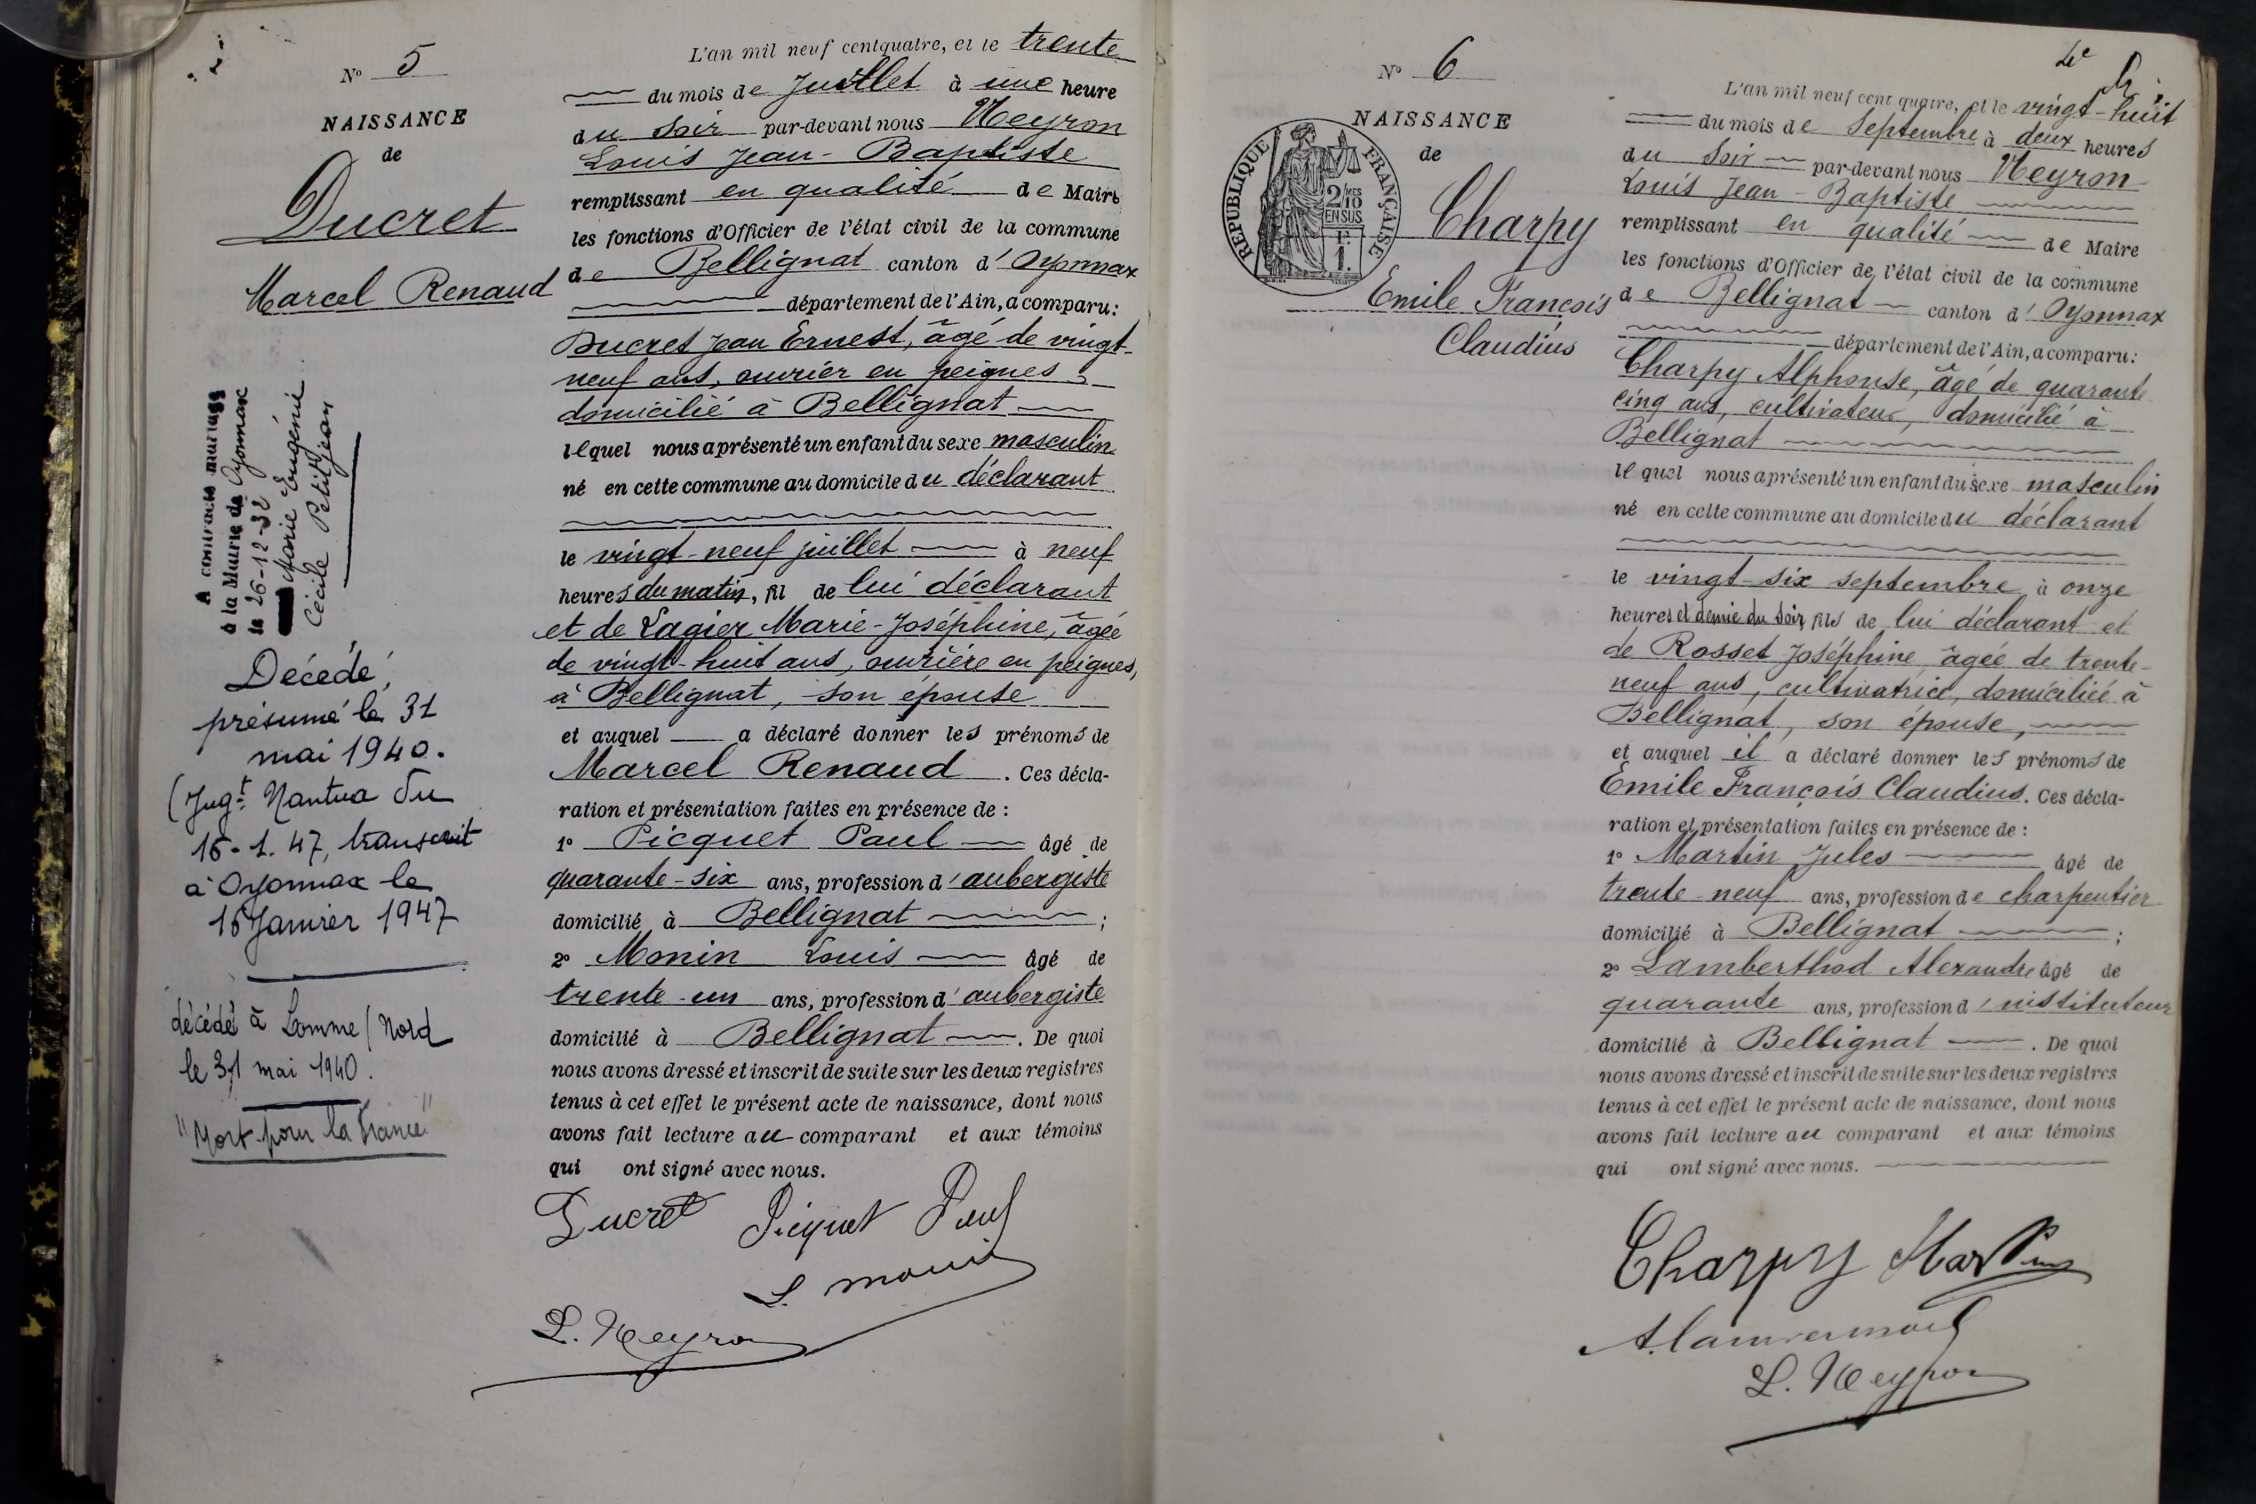 N° 5
NAISSANCE
de
Ducret
Marcel Renaud
A contracté mariage
à la Mairie de Oyonnax
le 26-12-32
Marie Eugénie
Cécile Petitjean
Décédé,
présumé le 31
mai 1940.
(Jugt Nantua du
16-1.47, transcrit
à Oyonnax le
16 Janvier 1947
décédé à Lomme (Nord
le 31 mai 1940.
"Mort pour la France"
L'an mil neuf cent quatre, et le trente
du mois de Juillet à une heure
du soir par-devant nous Neyron
Louis Jean-Baptiste
remplissant en qualité de Maire
les fonctions d'Officier de l'état civil de la commune
de Bellignat canton d'Oyonnax
département de l'Ain, a comparu:
Ducret Jean Ernest, âgé de vingt-
neuf ans, ouvrier en peignes,
domicilié à Bellignat
lequel nous a présenté un enfant du sexe masculin
né en cette commune au domicile du déclarant
le vingt-neuf juillet à neuf
heures du matin, fil de lui déclarant
et de Lagier Marie-Joséphine, âgée
de vingt-huit ans, ouvrière en peignes,
à Bellignat, son épouse
et auquel a déclaré donner les prénoms de
Marcel Renaud. Ces décla-
ration et présentation faites en présence de :
1° Picquet Paul âgé de
quarante-six ans, profession d'aubergiste
domicilié à Bellignat ;
2° Monin Louis âgé de
trente-un ans, profession d'aubergiste
domicilié à Bellignat. De quoi
nous avons dressé et inscrit de suite sur les deux registres
tenus à cet effet le présent acte de naissance, dont nous
avons fait lecture au comparant et aux témoins
qui ont signé avec nous.
Ducret Picquet Paul
L. Monin
L. Neyron
N° 6
NAISSANCE
de
RÉPUBLIQUE FRANÇAISE
2/10 MES
EN SUS
1.
Charpy
Emile François
Claudius
L'an mil neuf cent quatre, et le vingt-huit
du mois de Septembre à deux heures
du soir par-devant nous Neyron
Louis Jean-Baptiste
remplissant en qualité de Maire
les fonctions d'Officier de l'état civil de la commune
de Bellignat canton d'Oyonnax
département de l'Ain, a comparu:
Charpy Alphonse, âgé de quarante
cinq ans, cultivateur, domicilié à
Bellignat
lequel nous a présenté un enfant du sexe masculin
né en cette commune au domicile du déclarant
le vingt-six septembre à onze
heures et demie du soir, fils de lui déclarant et
de Rosset Joséphine âgée de trente-
neuf ans, cultivatrice, domiciliée à
Bellignat, son épouse,
et auquel il a déclaré donner les prénoms de
Emile François Claudius. Ces décla-
ration et présentation faites en présence de :
1° Martin Jules âgé de
trente-neuf ans, profession de charpentier
domicilié à Bellignat ;
2° Lamberthod Alexandre âgé de
quarante ans, profession d'instituteur
domicilié à Bellignat. De quoi
nous avons dressé et inscrit de suite sur les deux registres
tenus à cet effet le présent acte de naissance, dont nous
avons fait lecture au comparant et aux témoins
qui ont signé avec nous.
Charpy Martin
L. Neyron